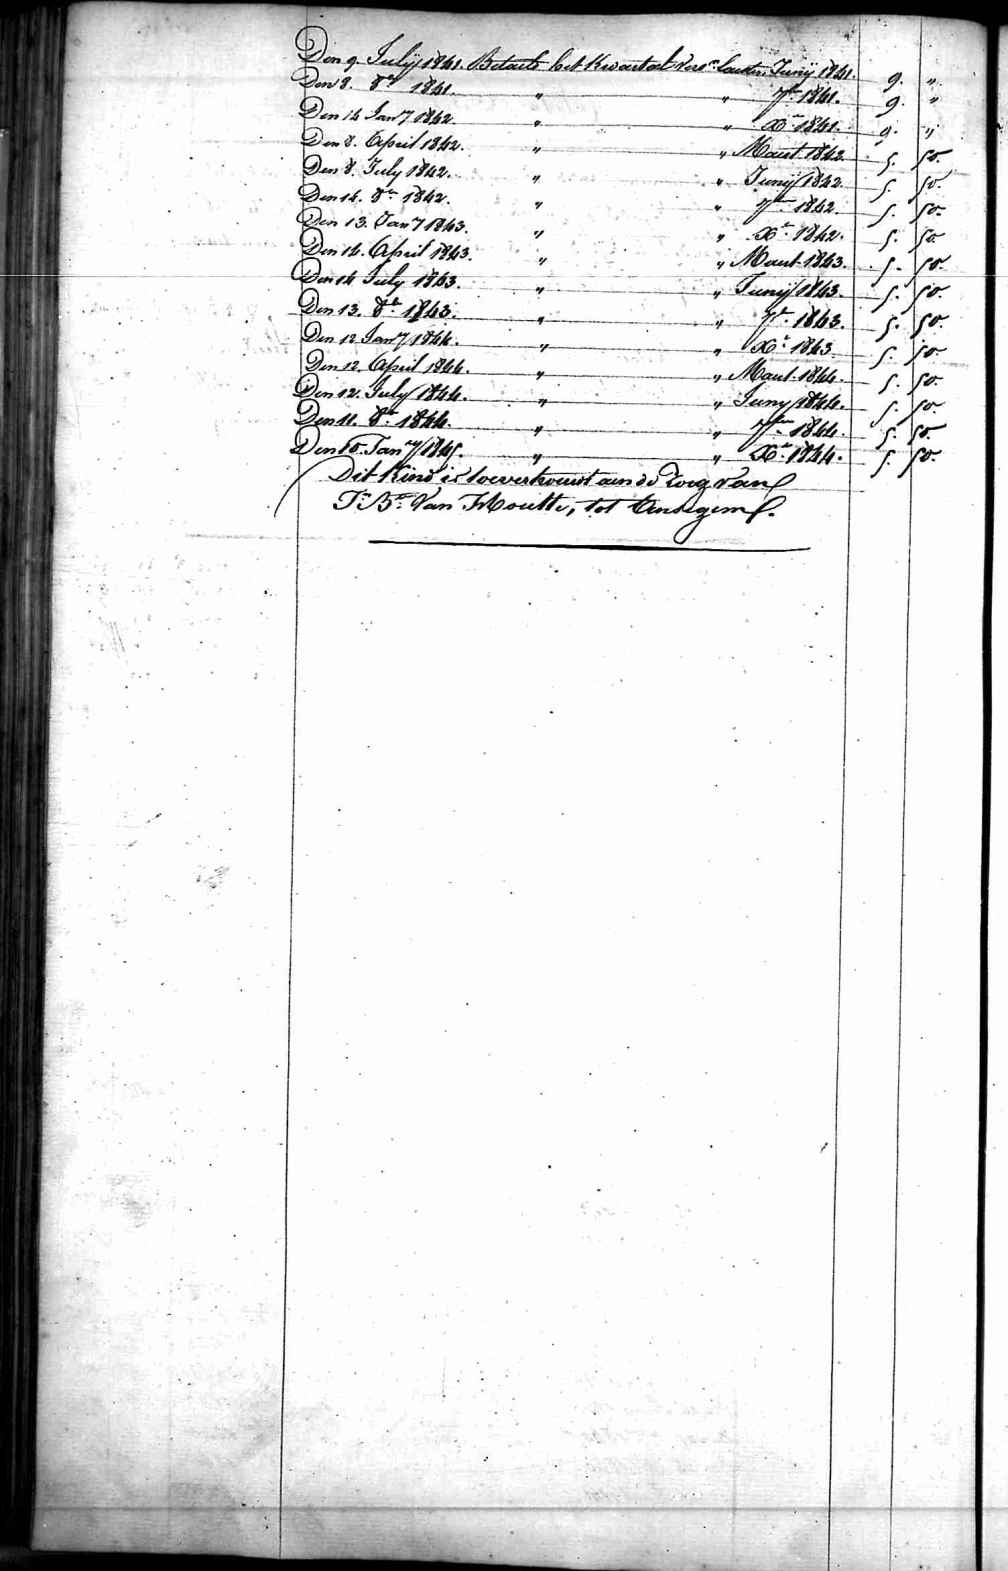 Den 9. Julij 1841. Betaelt het Kwartael vers.n lasten. Junij 1841. 9. "
Den 8. 8.re 1841. " " 7.bre 1841. 9. "
Den 14 Janry 1842. " " X.re 1841. 9. "
Den 8. April 1842. " " Maert 1842. 5. 50.
Den 8. July 1842. " " Junij 1842. 5. 50.
Den 14. 8.re 1842. " " 7.bre 1842. 5. 50.
Den 13. Janry 1843. " " X.re 1842. 5. 50
Den 14. April 1843. " " Maert 1843. 5. 50.
Den 14 July 1843. " " Junij 1843. 5. 50.
Den 13. 8.re 1843. " " 7.re 1843. 5. 50.
Den 12 Janry 1844. " " X.re 1843 5. 50
Den 12. April 1844. " " Maert 1844. 5. 50.
Den 12. July 1844. " " Juny 1844. 5. 50
Den 11. 8.re 1844. " " 7.bre 1844. 5. 50.
Den 10. Janry 1845. " " X.re 1844. 5. 50.
Dit Kind is toevertrouwt aen de zorg van
J.n B.te Van Houtte, tot